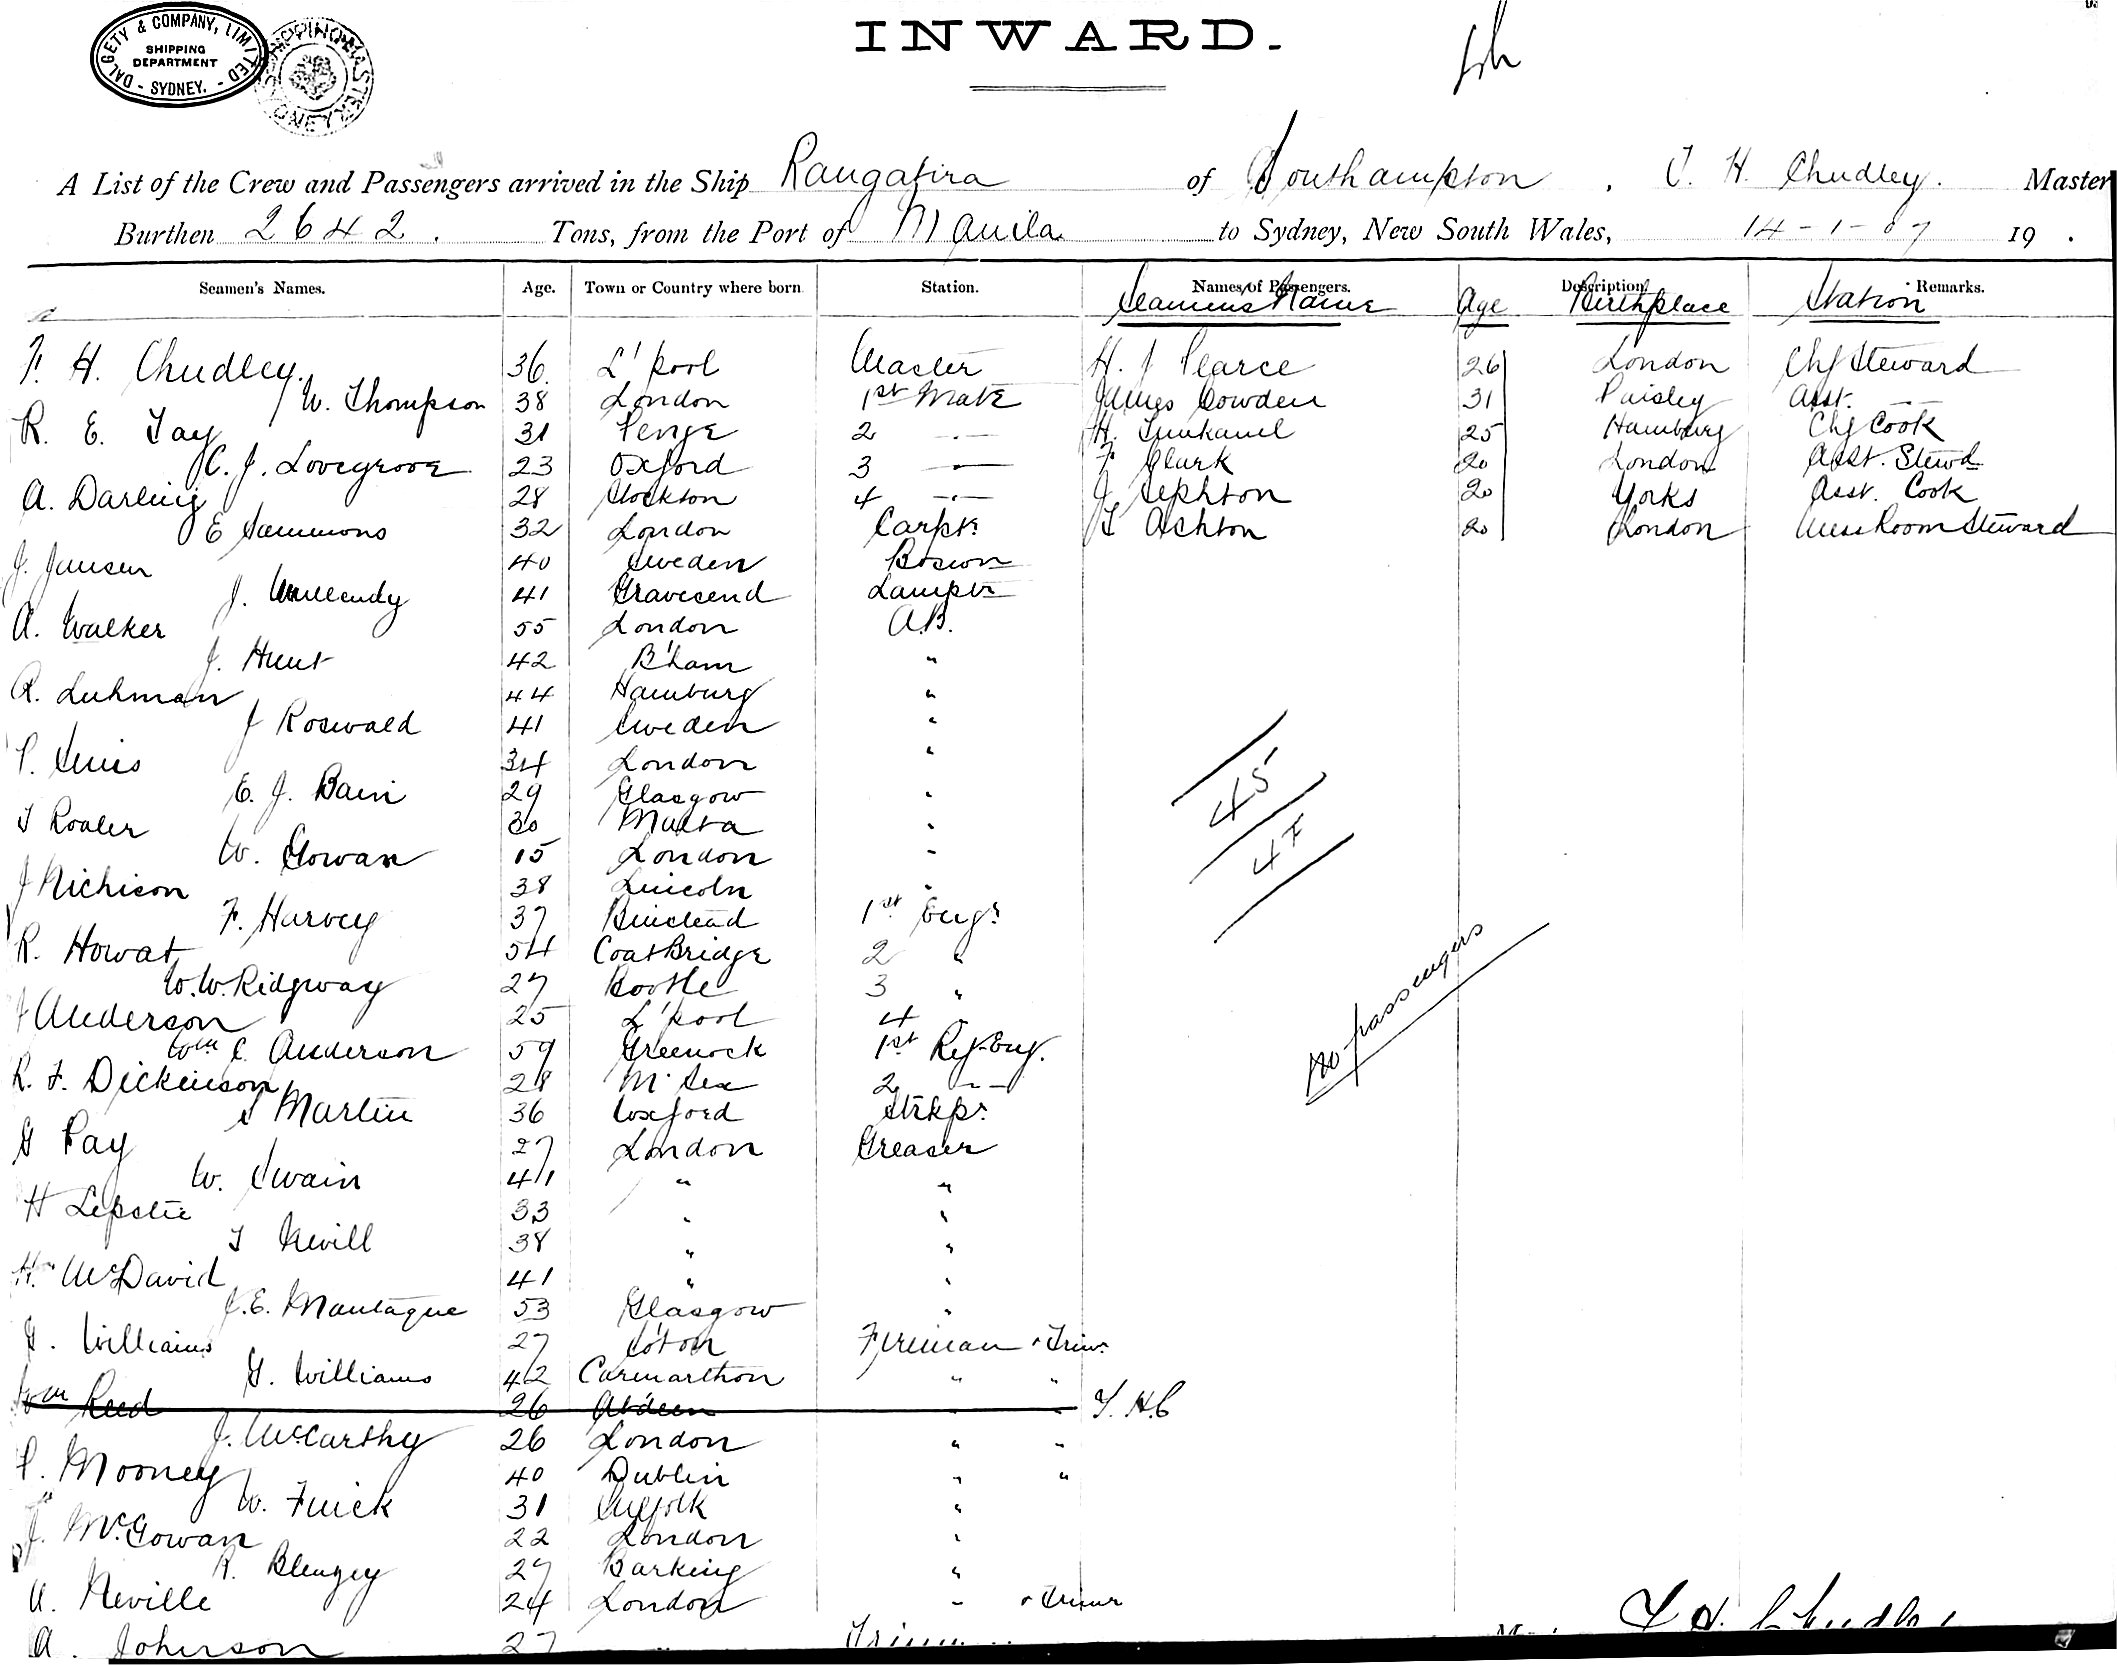 DALGETY & COMPANY, LIMITED
SHIPPING
DEPARTMENT
- SYDNEY. -
SHIPPING MASTER
SYDNEY
INWARD.
A List of the Crew and Passengers arrived in the Ship Rangatira of Southampton, T. H. Chudley. Master
Burthen 2642. Tons, from the Port of Manila to Sydney, New South Wales, 14-1-07 19 .
Seamen's Names. Age. Town or Country where born Station. Names of Passengers. Description Remarks.
Seamens Name Age Birthplace Station
F. H. Chudley. 36. L'pool Master H. J Pearce 26 London Chf Steward
W. Thompson 38 London 1st Mate James Cowden 31 Paisley Asst. —
R. E. Tay 31 Penge 2 — H. 25 Hamburg Chf Cook
C. J. Lovegrove 23 Oxford 3 — F Clark 20 London Asst. Stewd
A. Darling 28 Stockton 4 — J Sephton 20 Yorks Asst. Cook
E Sammons 32 London Carptr T Ashton 20 London Mess Room Steward
J. Jansen 40 Sweden Boswn
J. Mullendy 41 Gravesend Lamptr
A. Walker 55 London A.B.
J. Hunt 42 B'ham "
R. Luhman 44 Hamburg "
J Roswald 41 Sweden "
P. 34 London "
E. J. Bain 29 Glasgow "
T 30 Malta "
W. Gowan 15 London "
J Nichison 38 Lincoln "
F. Harvey 37 Binstead 1st Engr
R. Howat 54 CoatBridge 2 "
W. W. Ridgway 27 Bootle 3 "
J Anderson 25 L'pool 4 "
Wm C. Anderson 59 Greenock 1st Ref. Eng.
R. F. Dickinson 28 M'Sex 2 — —
S Martin 36 Oxford Strkpr
G Pay 27 London Greaser
W. Swain 41 " "
H Lepstie 33 " "
T Nevill 38 " "
Hn McDavid 41 " "
J. E. Mantague 53 Glasgow "
G. Williams 27 S'ton Fireman & Trimr
G. Williams 42 Carmarthon " "
Wm Reed 26 Ab'deen " " T. H. C
J. McCarthy 26 London " "
P. Mooney 40 Dublin " "
W. Finick 31 Suffolk "
J. McGowan 22 London "
R. Blengey 27 Barking "
A. Neville 24 London " & Trimr
A. Johnson 27 "
45
47
No passengers
T H Chudley